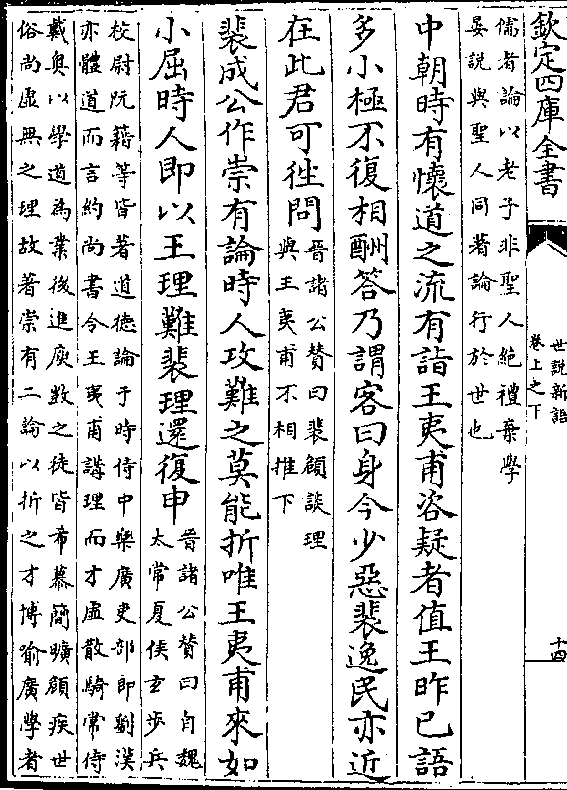 欽定四庫全書
世說新語
卷上之下
十四
儒者論以老子非聖人絶禮棄學
晏說與聖人同著論行於世也
中朝時有懷道之流有詣王夷甫咨疑者值王昨已語
多小極不復相酬答乃謂客曰身今少惡裴逸民亦近
在此君可徃問
晉諸公贊曰裴頠談理
與王夷甫不相推下
裴成公作崇有論時人攻難之莫能折唯王夷甫來如
小屈時人即以王理難裴理還復申
晉諸公贊曰自魏
太常夏侯玄步兵
校尉阮籍等皆著道德論于時侍中樂廣吏部郎劉漢
亦體道而言約尚書令王夷甫講理而才虛散騎常侍
戴奥以學道為業後進庾敳之徒皆希慕簡曠頠疾世
俗尚虛無之理故著崇有二論以折之才博喻廣學者